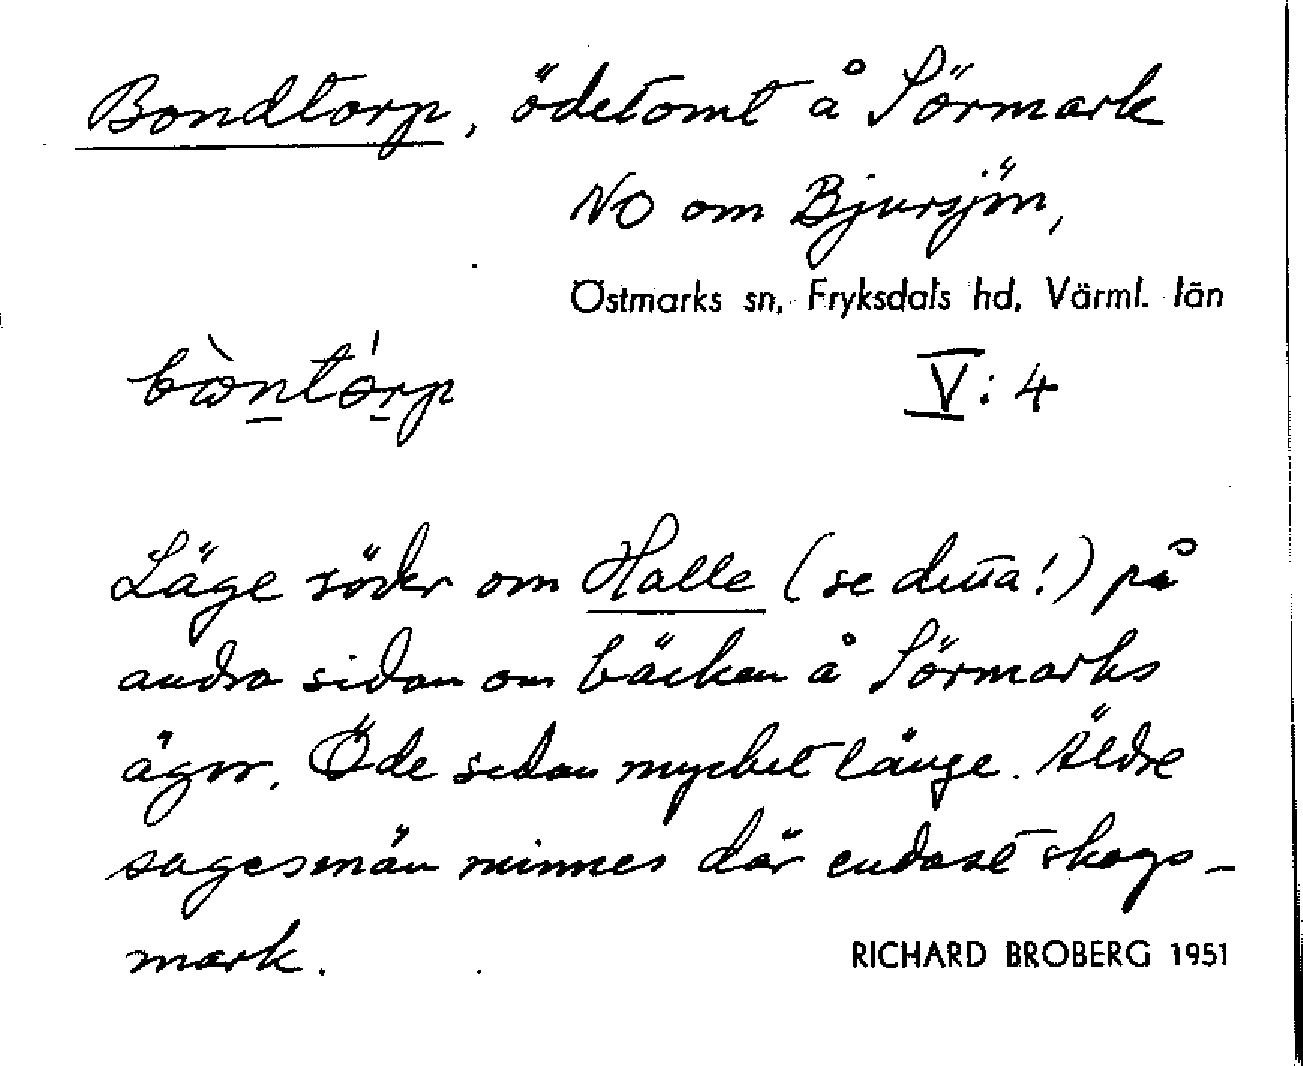 Bondtorp, ödetomt å Sörmark
NO om Bjursjön,
Östmarks sn, Fryksdals hd, Värml. län
bὼntórp V:4
Läge söder om Halle (se detta!) på
andra sidan om bäcken å Sörmarks
ägor. Öde sedan mycket länge. Äldre
sagesmän minnes där endast skogs-
mark.
RICHARD BROBERG 1951